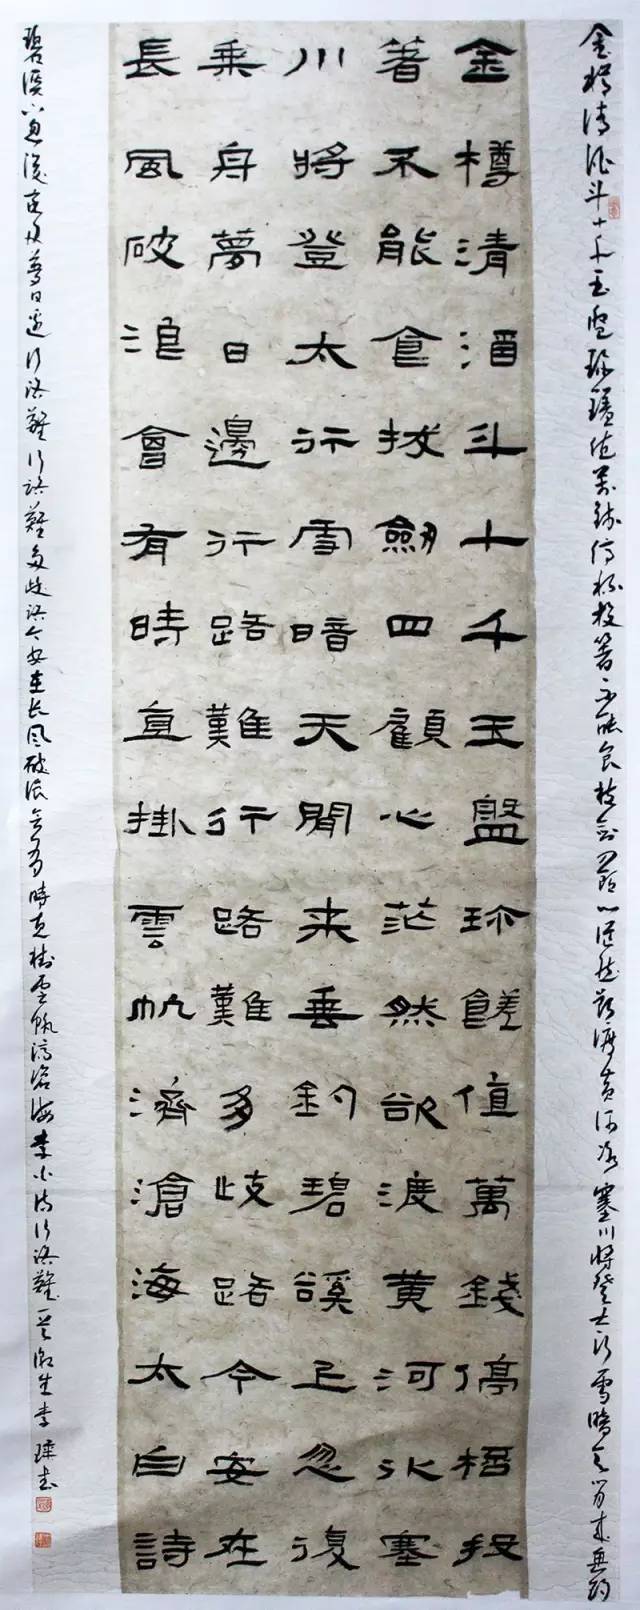 金樽清酒斗十千玉盤珍饈值萬錢停杯投箸不能食拔劍四顧心茫然欲渡黄河冰塞川將登太行雪暗天閒来垂釣
金樽清酒斗十千玉盤珎饈值萬錢停桮投
箸不能食拔劍四顧心茫然欲渡黄河冰塞
川將登太行雪暗天閒来垂釣碧谿上忽復
乘舟夢日邊行路難行路難多歧路今安在
長風破浪會有時直掛雲帆濟滄海太白詩
碧溪上忽復乘舟夢日邊行路難行路難多歧路今安在長風破浪會有時直掛雲帆濟滄海李白詩行路難一首李書